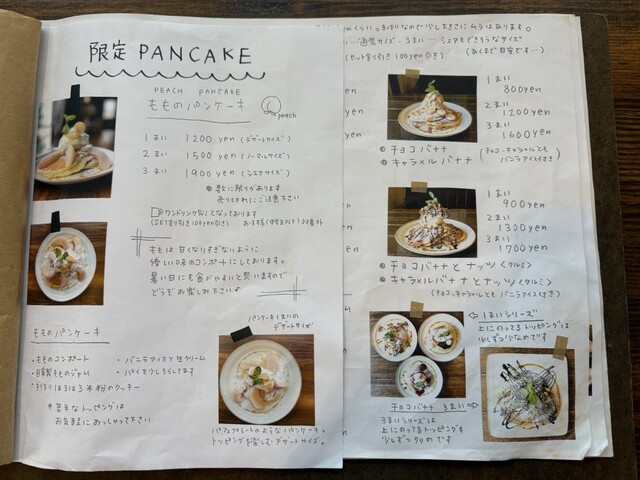 限定 PANCAKE
PEACH PANCAKE
もものパンケーキ
peach
1まい 1200yen(デザートサイズ)
2まい 1500yen(ノーマルサイズ)
3まい 1900yen(シェアサイズ)
数に限りがあります
売り切れにご注意下さい
ワンドリンク制となっております
(SET割り引き100yen引き)
ももは甘くなりすぎないように
優しい味のコンポートにしております。
暑い日にも食べやすいと思いますので
どうぞお楽しみ下さい♪
パンケーキ1まいの
デザートサイズ
もものパンケーキ
・ももコンポート
・自製もものジャム
・手作りほろほろ米粉のクッキー
・バニラアイスで生クリーム
・パイを少しちらしてます
*苦手なトッピングは
お気軽におっしゃって下さい
パフェプレートのようなパンケーキ。
トッピングを楽しむデザートサイズ。
くらい。手作りなので少し大きさにムラはあります。
…通常サイズ・3まい…シェアもできそうなサイズ
(セット割り引き100yen引き) (あくまで目安です…)
1まい
800yen
2まい
1200yen
3まい
1600yen
チョコバナナ
キャラメルバナナ
(チョコ・キャラメルとも
バニラアイス付き)
1まい
900yen
2まい
1300yen
3まい
1700yen
チョコバナナとナッツ〈クルミ〉
キャラメルバナナとナッツ〈クルミ〉
(チョコ、キャラメルとも バニラアイス付き)
1まいシリーズ
上にのってるトッピングは
少しずつ少なめです
チョコバナナ 3まい
3まいシリーズは
上にのってるトッピングも
少しずつ多めです